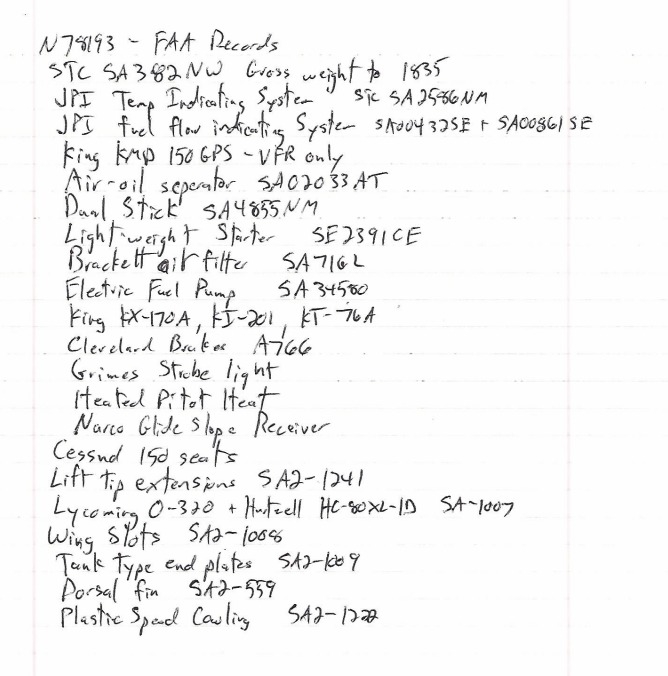 N78193 - FAA Records
STC SA382NW Gross weight to 1835
JPI Temp Indicating System STC SA2586NM
JPI fuel flow indicating System SA00432SE + SA00861SE
King KMD 150 GPS - VFR only
Air-oil seperator SA02033AT
Dual Stick SA4855NM
Light-weight Starter SE2391CE
Brackett air filter SA71GL
Electric Fuel Pump SA34580
King KX-170A, KI-201, KT-76A
Cleveland Brakes A766
Grimes Strobe light
Heated Pitot Heat
Narco Glide Slope Receiver
Cessna 150 seats
Lift tip extensions SA2-1241
Lycoming O-320 + Hartzell HC-80XL-1D SA-1007
Wing Slots SA2-1008
Tank Type end plates SA2-1009
Dorsal fin SA2-559
Plastic Speed Cowling SA2-1222